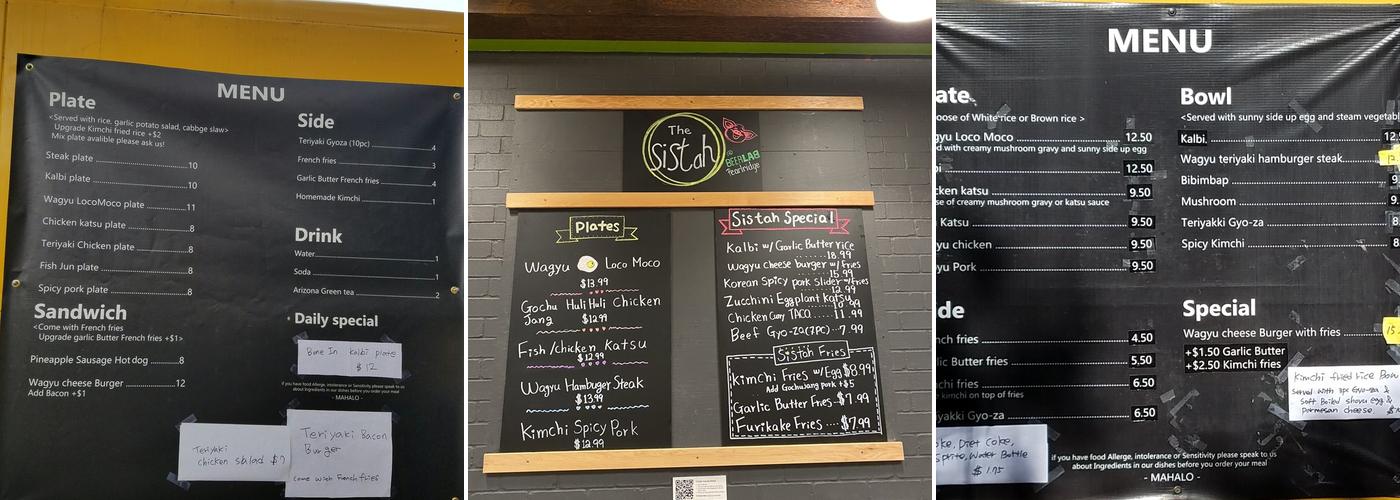 MENU
Plate
<Served with rice, garlic potato salad, cabbge slaw>
Upgrade Kimchi fried rice +$2
Mix plate avalible please ask us!
Steak plate 10
Kalbi plate 10
Wagyu LocoMoco plate 11
Chicken katsu plate 8
Teriyaki Chicken plate 8
Fish Jun plate 8
Spicy pork plate 8
Sandwich
<Come with French fries
Upgrade garlic Butter French fries +$1>
Pineapple Sausage Hot dog 8
Wagyu cheese Burger 12
Add Bacon +$1
Side
Teriyaki Gyoza (10pc) 4
French fries 3
Garlic Butter French fries 4
Homemade Kimchi 1
Drink
Water 1
Soda 1
Arizona Green tea 2
Daily special
Bone In Kalbi plate
$12
If you have food Allergy, intolerance or Sensitivity please speak to us
about Ingredients in our dishes before you order your meal
- MAHALO -
Teriyaki
chicken salad $7
Teriyaki Bacon
Burger
come with French fries
The
Sistah
@
BEERLAB
Pearlridge
Plates
Wagyu Loco Moco
$13.99
Gochu Huli Huli Chicken
Jang $12.99
Fish/chicken Katsu
$12.99
Wagyu Hamburger Steak
$13.99
Kimchi Spicy Pork
$12.99
Sistah Special
Kalbi w/ Garlic Butter rice
18.99
Wagyu cheese burger w/ Fries
15.99
Korean Spicy pork Slider w/fries
12.99
Zucchini Eggplant Katsu
10.99
Chicken Curry TACO 11.99
Beef Gyo-za(7PC) 7.99
Sistah Fries
Kimchi Fries w/Egg $8.99
Add Gochujang pork +$5
Garlic Butter Fries $7.99
Furikake Fries $7.99
MENU
ate
oose of White rice or Brown rice >
gyu Loco Moco 12.50
d with creamy mushroom gravy and sunny side up egg
bi 12.50
cken katsu 9.50
se of creamy mushroom gravy or katsu sauce
Katsu 9.50
yu chicken 9.50
yu Pork 9.50
de
nch fries 4.50
lic Butter fries 5.50
chi fries 6.50
e kimchi on top of fries
yakki Gyo-za 6.50
oke, Diet Coke,
Sprite, Water Bottle
$1.75
Bowl
<Served with sunny side up egg and steam vegetabl
Kalbi 12.
Wagyu teriyaki hamburger steak 12.
Bibimbap 9.
Mushroom 9.
Teriyakki Gyo-za 8
Spicy Kimchi 8
Special
Wagyu cheese Burger with fries 15.
+$1.50 Garlic Butter
+$2.50 Kimchi fries
Kimchi fried rice Bow
Served with 3pc Gyo-za &
Soft Boiled shoyu egg &
Parmesan cheese $
If you have food Allergy, intolerance or Sensitivity please speak to us
about Ingredients in our dishes before you order your meal
- MAHALO -